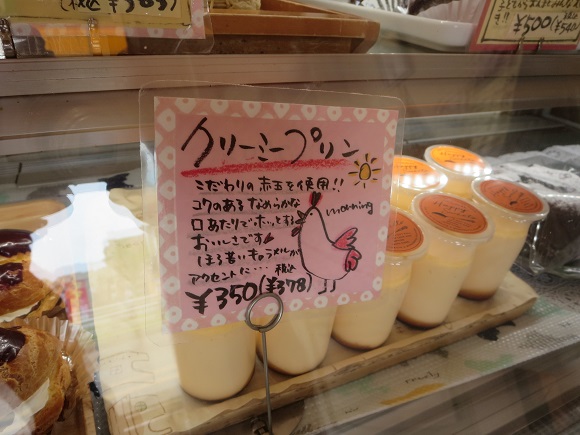 (税込 ¥385)
¥500(¥540)
クリーミープリン
こだわりの赤玉を使用!!
コクのあるなめらかな
口あたりでホッとする
おいしさです
ほろ苦いキャラメルが
アクセントに・・・税込
¥350(¥378)
morning